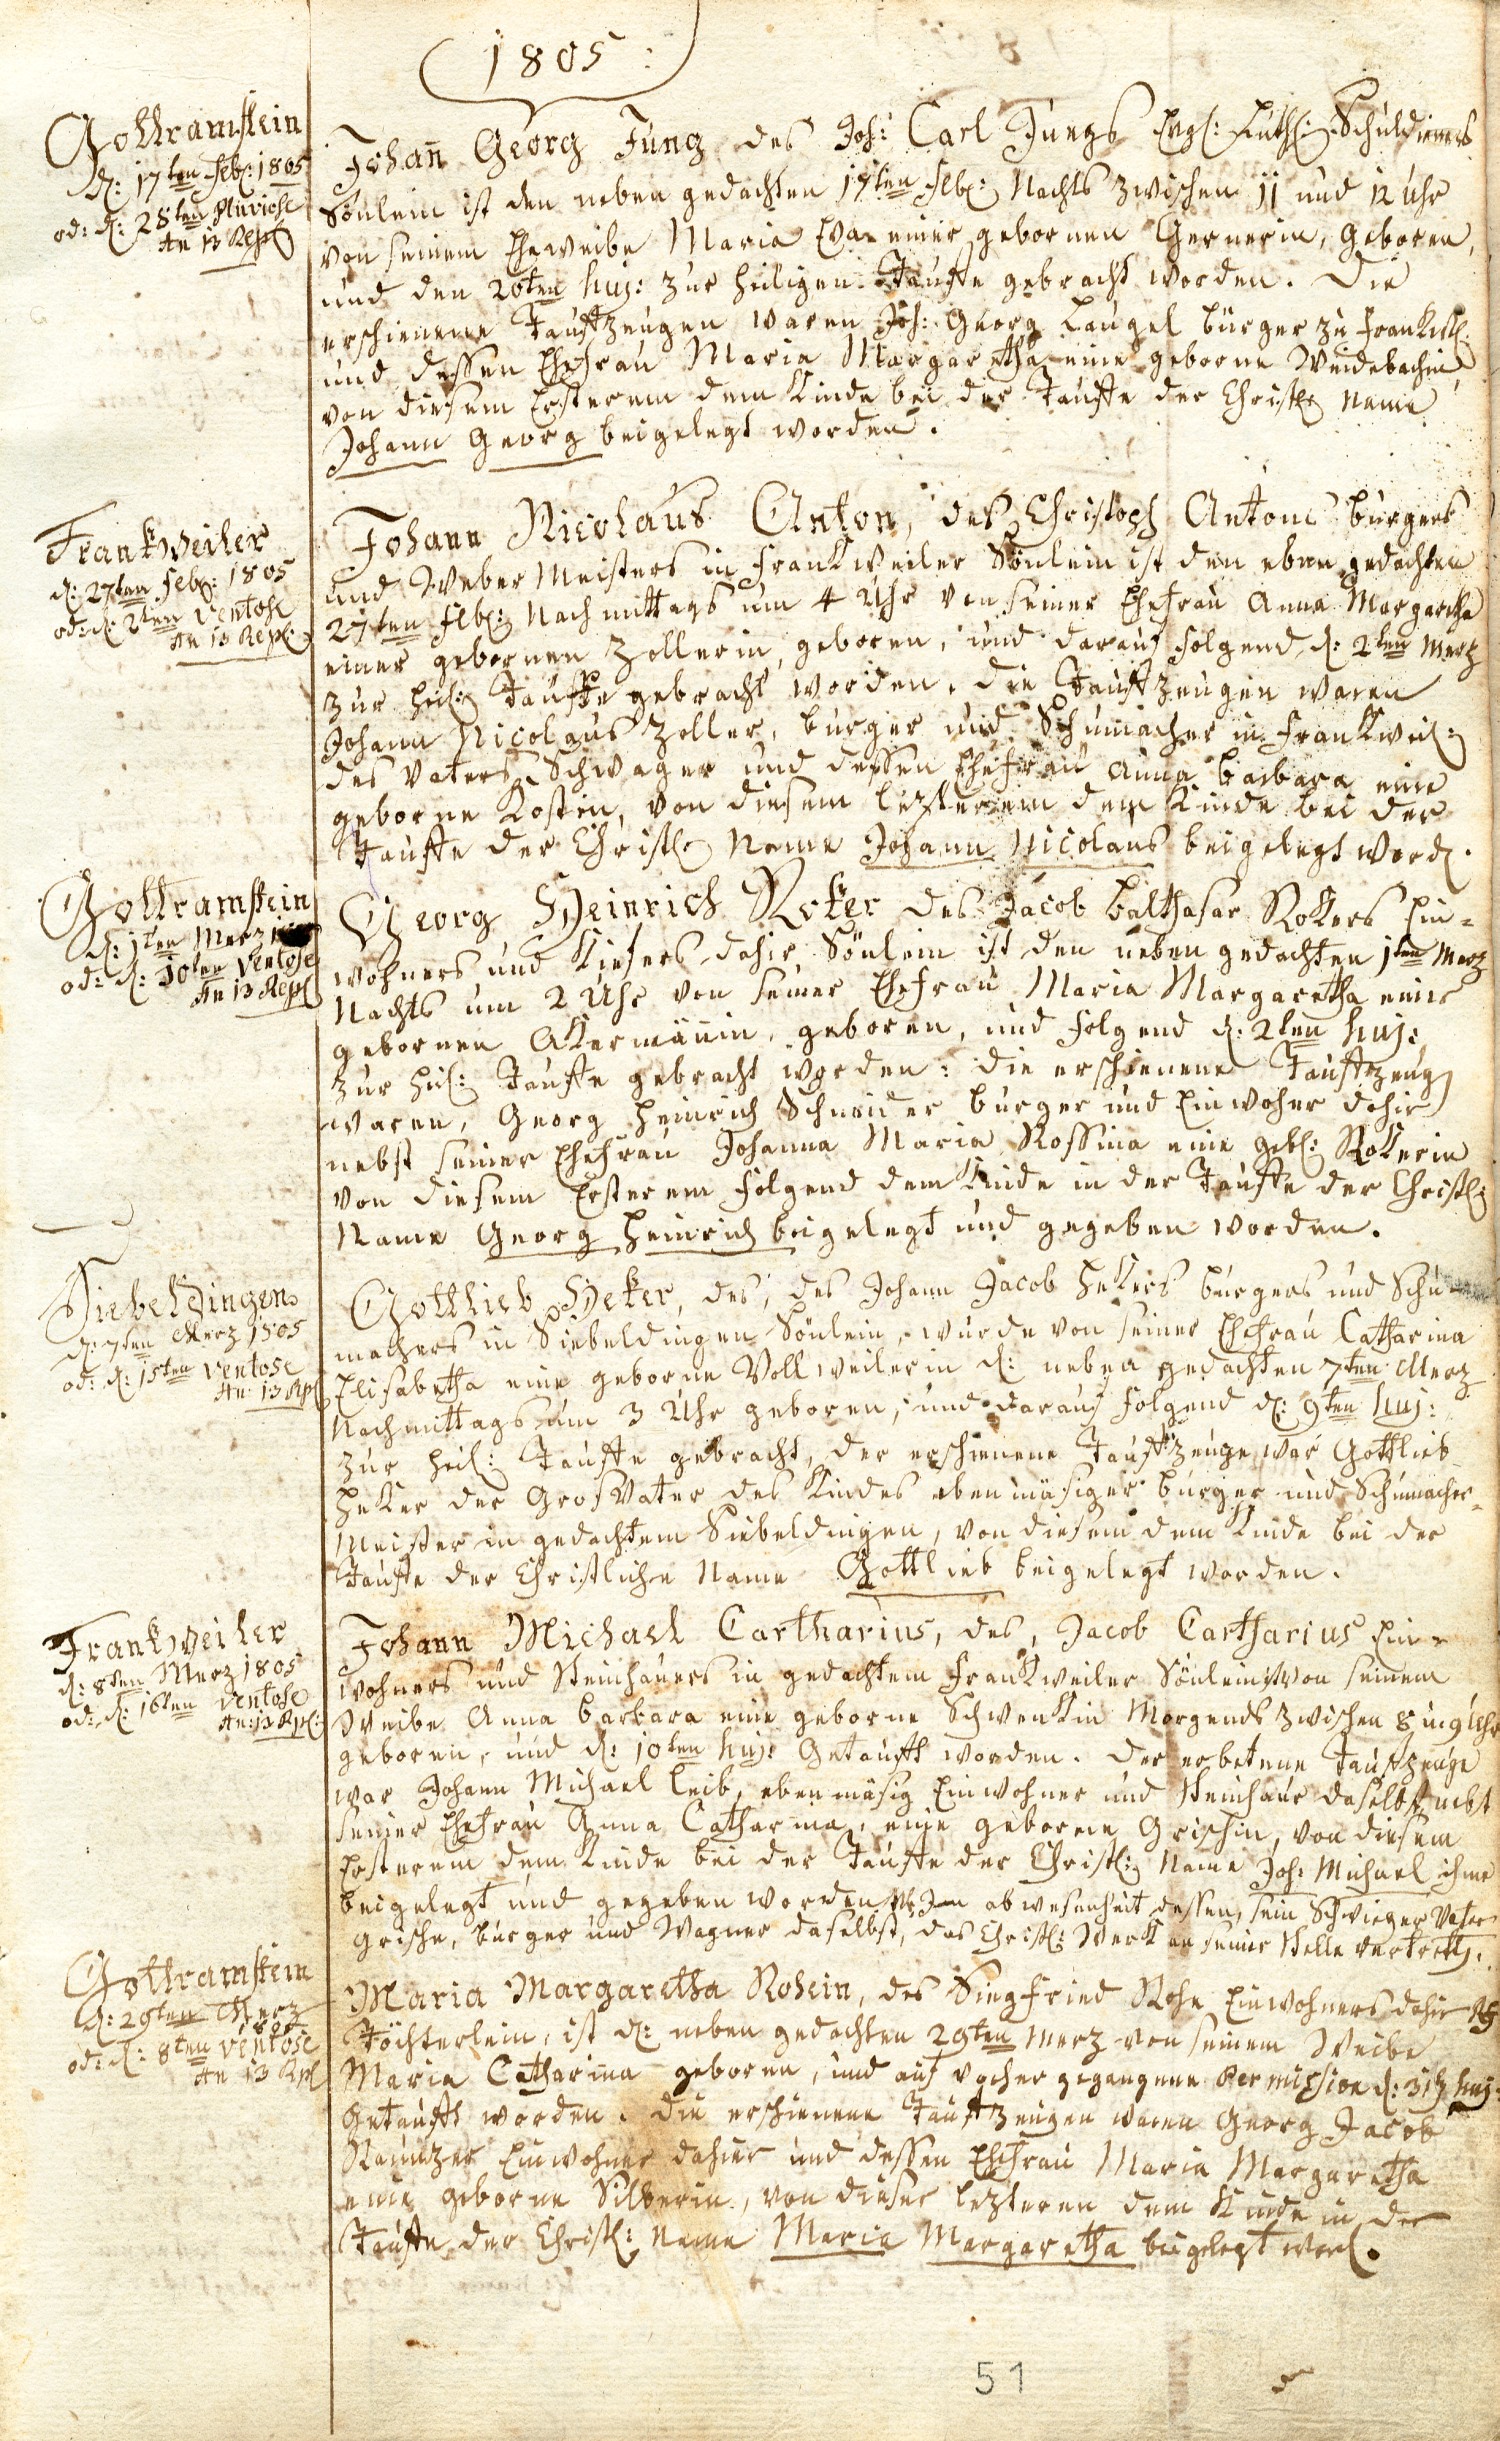 1805:
Gottramstein
d: 17ten Feb: 1805
od: d: 28ten Pluviose
An 13 Rep
Johann Georg Jung des Joh: Carl Jungs Evg: Luth: Schuldieners
Sönlein ist den neben gedachten 17ten Feb: Nachts zwischen 11 und 12 Uhr
von seinem Eheweibe Maria Eva einer gebornen Gernerin, geboren,
und den 20ten huj: zur heiligen Tauffe gebracht worden. Die
erschienene Tauffzeugen waren Joh: Georg Laugel bürger zu Frankw:
und dessen Ehefrau Maria Margaretha eine geborne Weidebachin
von diesem Ersterem dem Kinde bei der Tauffe der Christl: Name
Johann Georg beigelegt worden.
Frankweiler
d: 27ten Feb: 1805
od: d: 2ten Ventose
An 13 Rep:
Johann Nicolaus Anton, des Christoph Antons bürgers
und Weber Meisters in Frankweiler Sönlein ist den eben gedachten
27ten Feb: Nachmittags um 4 Uhr von seiner Ehefrau Anna Margaretha
einer gebornen Zollerin, geboren, und darauf folgend d: 2ten Merz
zur heil: Tauffe gebracht worden, die Tauffzeugen waren
Johann Nicolaus Zoller, bürger und Schumacher in Frankweil:
des Vaters Schwager und dessen Ehefrau Anna Barbara eine
geborne Kostin, von diesem lezterem dem Kinde bei der
Tauffe der Christl: Name Johann Nicolaus beigelegt word.
Gottramstein
d: 1ten Merz
od: d: 10ten Ventose
An 13 Rep
Georg Heinrich Roker des Jacob Balthasar Rokers Ein-
wohners und Kiefers dahir Sönlein ist den neben gedachten 1ten Merz
Nachts um 2 Uhr von seiner Ehefrau Maria Margaretha einer
gebornen Akermännin, geboren, und folgend d: 2ten huj:
zur heil: Tauffe gebracht worden: die erschienene Tauffzeug
waren, Georg Heinrich Schneider bürger und Einwoher dahir
nebst seiner Ehefrau Johanna Maria Rossina eine geb: Rokerin
von diesem Ersterem folgend dem Kinde in der Tauffe der Christl:
Name Georg Heinrich beigelegt und gegeben worden.
Siebeldingen
d: 7ten Merz 1805
od: d: 15ten Ventose
An: 13 Rp
Gottlieb Heker, des, des Johann Jacob Hekers bürgers und Schu-
machers in Siebeldingen Sönlein, wurde von seiner Ehefrau Catharina
Elisabetha eine geborne Vollweilerin d: neben gedachten 7ten Merz
Nachmittags um 3 Uhr geboren, und darauf folgend d: 9ten huj:
zur heil: Tauffe gebracht, der erschienene Tauffzeuge war Gottlieb
Heker der GrosVater des Kindes ebenmäsiger bürger und Schumacher-
Meister in gedachtem Siebeldingen, von diesem dem Kinde bei der
Tauffe der Christliche Name Gottlieb beigelegt worden.
Frankweiler
d: 8ten Merz 1805
od: d: 16ten Ventose
An: 13 Rp:
Johann Michael Cartharius, des, Jacob Cartharius Ein-
wohners und Steinhauers in gedachtem Frankweiler Sönlein von seinem
Weibe Anna Barbara eine geborne Schwenkin Morgends zwischen 8 u: 9 Uhr
geboren, und d: 10ten huj: Getaufft worden. Der erbetene Taufzeuge
war Johann Michael Leib, ebenmäsig Einwohner und Steinhaur daselbst nebst
seiner Ehefrau Anna Catharina, eine geborne Grischin, von diesem
Ersterem dem Kinde bei der Tauffe der Christl: Name Joh: Michael ihme
beigelegt und gegeben worden. In abwesenheit dessen, sein Schwieger Vater
Grische, bürger und Wagner daselbst, das Christl: Werk an seiner Stelle vertrett.
Gottramstein
d: 29ten Merz
1805
od: d: 8ten Ventose
An 13 Rp
Maria Margaretha Rohein, des Siegfried Rohe Einwohners dahir
Töchterlein, ist d: neben gedachten 29ten Merz von seinem Weibe
Maria Catharina geboren, und auf vorher gegangene Permission d: 31t huj:
Getaufft worden. Die erschienene Tauffzeugen waren Georg Jacob
Einwohner dahier und dessen Ehefrau Maria Margaretha
eine geborne Silberin, von dieser lezteren dem Kinde in der
Tauffe der Christl: Name Maria Margaretha beigelegt word.
51